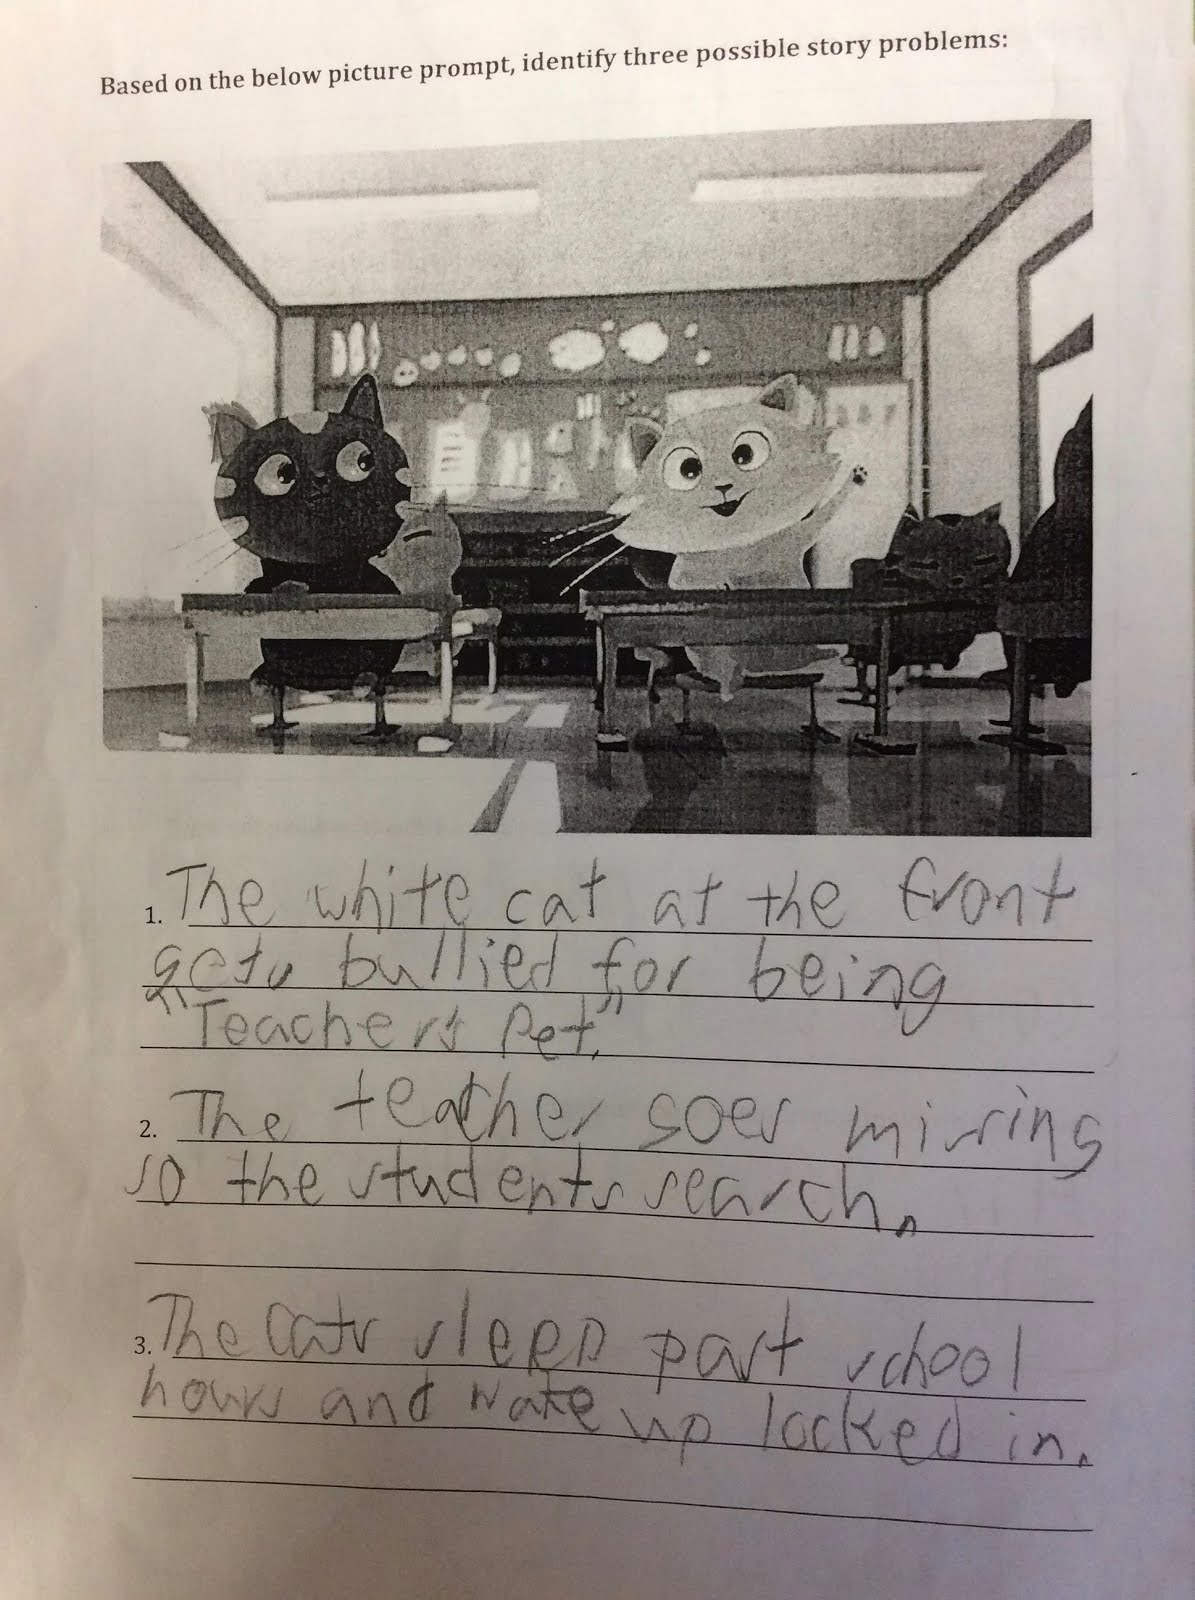 Based on the below picture prompt, identify three possible story problems:
1. The white cat at the front
gets bullied for being
"Teachers Pet."
2. The teacher goes missing
so the students search.
3. The cats sleep past school
hours and wake up locked in.